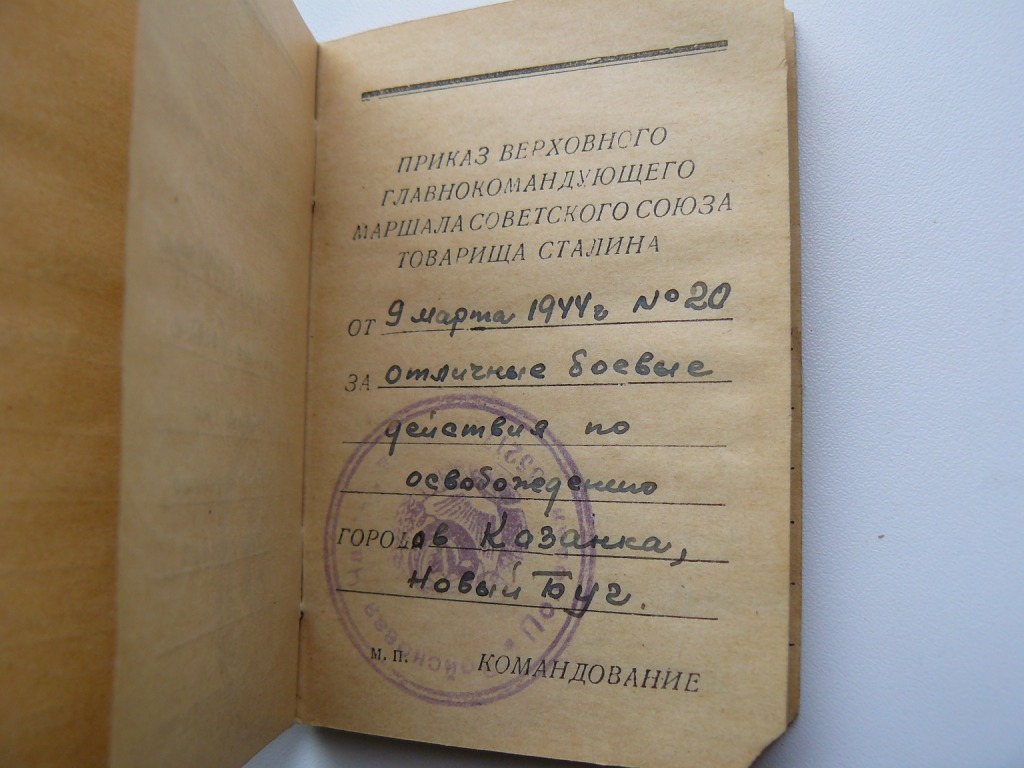 ПРИКАЗ ВЕРХОВНОГО
ГЛАВНОКОМАНДУЮЩЕГО
МАРШАЛА СОВЕТСКОГО СОЮЗА
ТОВАРИЩА СТАЛИНА
ОТ 9 марта 1944г №20
ЗА отличные боевые
действия по
освобождению
ГОРОДов Казанка,
Новый Буг.
М. П. КОМАНДОВАНИЕ